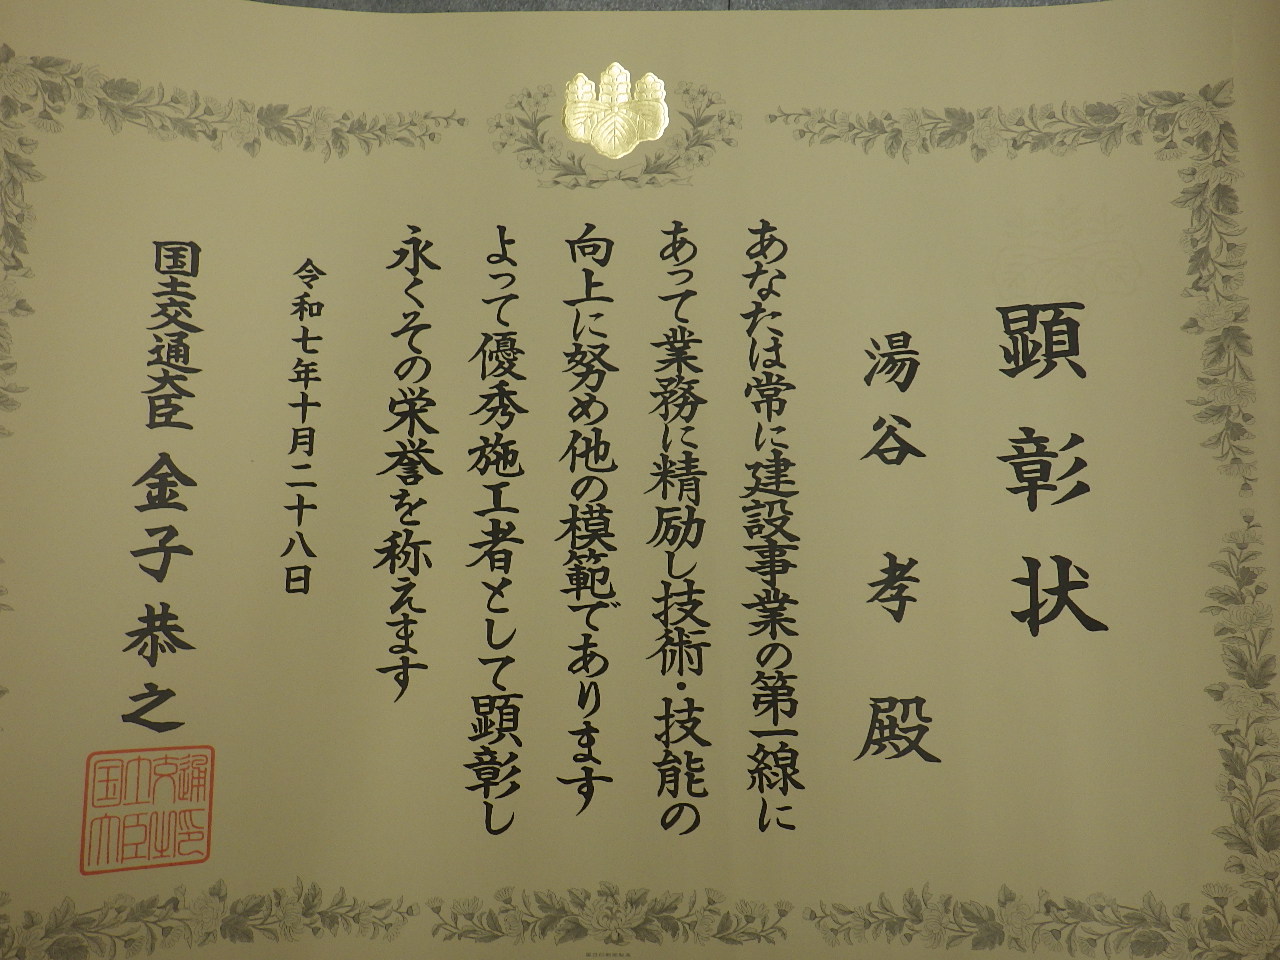 顕彰状
湯谷 孝 殿
あなたは常に建設事業の第一線に
あって業務に精励し技術・技能の
向上に努め他の模範であります
よって優秀施工者として顕彰し
永くその栄誉を称えます
令和七年十月二十八日
国土交通大臣 金子恭之
国土交通
大臣之印